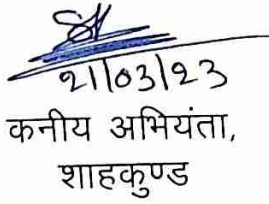 21/03/23
कनीय अभियंता,
शाहकुण्ड